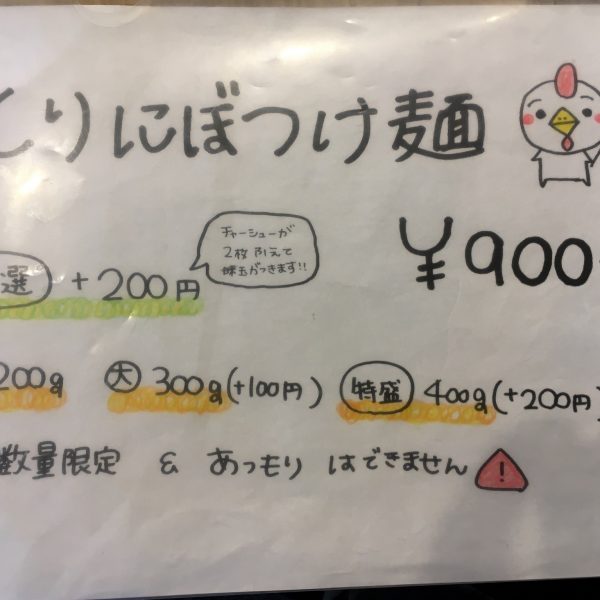 とりにぼつけ麺
¥900
選 +200円
チャーシューが
2枚増えて
味玉がつきます!!
200g 大 300g(+100円) 特盛 400g(+200円)
数量限定 & あつもり はできません !